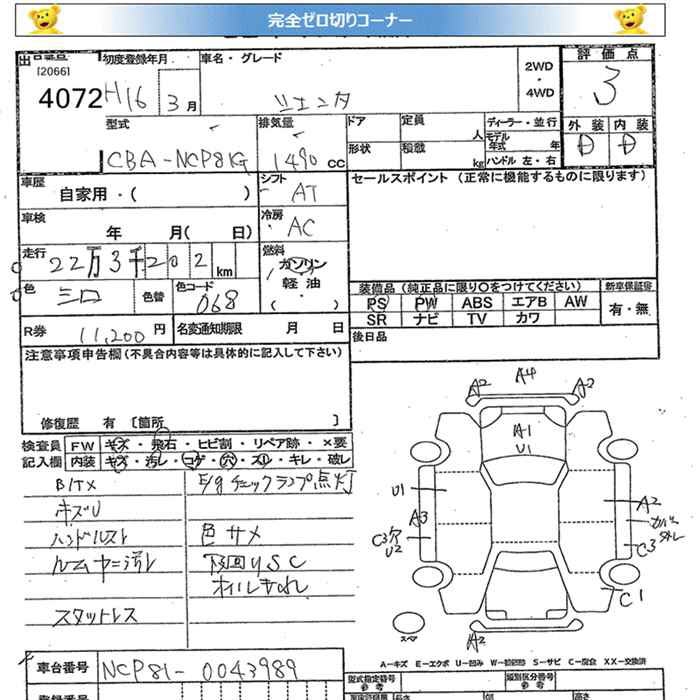 完全ゼロ切りコーナー
出品番号 初度登録年月 車名・グレード 2WD・4WD 評価点
[2066]
4072 H16 3月 シエンタ 3
型式 排気量 ドア 定員 人 ディーラー・並行 外装 内装
CBA-NCP81G 1490cc 形状 積載 kg モデル年式 年 D D
ハンドル 左・右
車歴 シフト セールスポイント (正常に機能するものに限ります)
自家用・( ) AT
車検 冷房
年 月( 日) AC
走行 燃料
22万3千202km ガソリン
軽油
( ・ )
色 シロ 色替 色コード 068
装備品(純正品に限り○をつけてください) 新車保証書
PS PW ABS エアB AW 有・無
SR ナビ TV カワ
R券 11,200円 名変通知期限 月 日 後日品
注意事項申告欄(不具合内容等は具体的に記入して下さい)
修復歴 有 [箇所 ]
検査員記入欄 FW キズ・飛石・ヒビ割・リペア跡・×要
内装 キズ・汚レ・コゲ・穴・スレ・キレ・破レ
E/gチェックランプ点灯
キズU
ハンドルスレ 色サメ
ルームヤニ汚レ 下回りSC
オイルもれ
スタットレス
A2 A4 A2
A1
U1
U1 A2
A3 カバー
C3穴 C3
U2
C1
スペア A2
A-キズ E-エクボ U-凹み W-補修跡 S-サビ C-腐食 XX-交換済
車台番号 NCP81-0043989
型式指定番号 類別区分番号
参考 参考
登録番号 長さ 幅 高さ